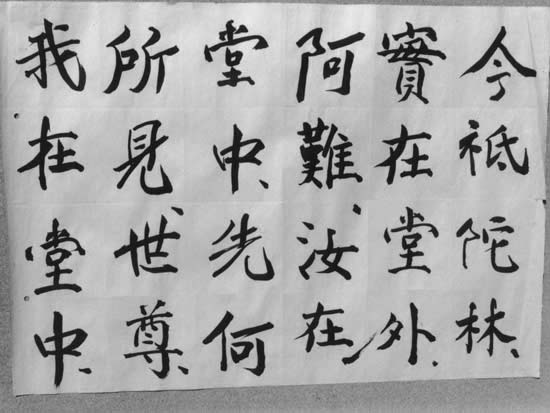 今祗陀林、
實在堂外、
阿難、汝在
堂中、先何
所見、世尊、
我在堂中、